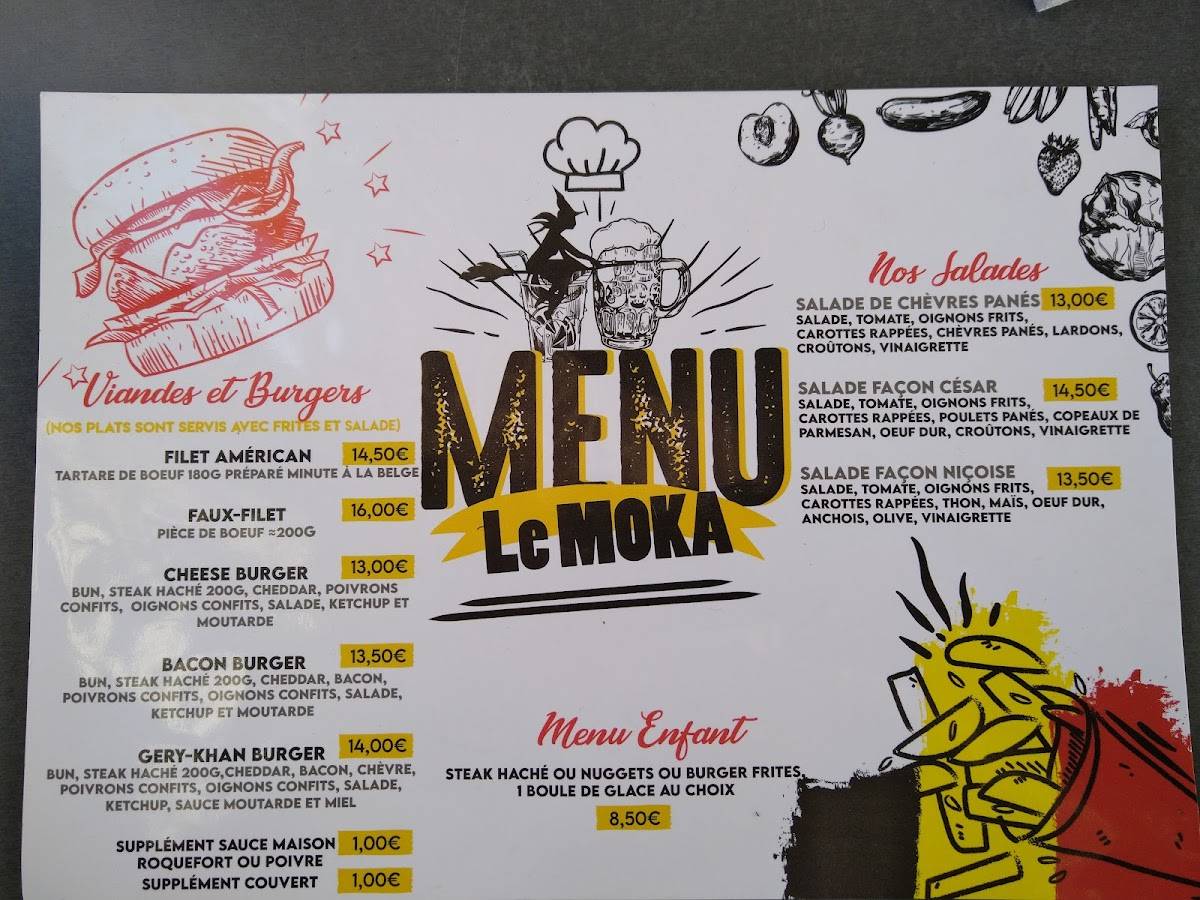 Viandes et Burgers
(NOS PLATS SONT SERVIS AVEC FRITES ET SALADE)
FILET AMÉRICAN 14,50€
TARTARE DE BOEUF 180G PRÉPARÉ MINUTE À LA BELGE
FAUX-FILET 16,00€
PIÈCE DE BOEUF ≈200G
CHEESE BURGER 13,00€
BUN, STEAK HACHÉ 200G, CHEDDAR, POIVRONS
CONFITS, OIGNONS CONFITS, SALADE, KETCHUP ET
MOUTARDE
BACON BURGER 13,50€
BUN, STEAK HACHÉ 200G, CHEDDAR, BACON,
POIVRONS CONFITS, OIGNONS CONFITS, SALADE,
KETCHUP ET MOUTARDE
GERY-KHAN BURGER 14,00€
BUN, STEAK HACHÉ 200G,CHEDDAR, BACON, CHÈVRE,
POIVRONS CONFITS, OIGNONS CONFITS, SALADE,
KETCHUP, SAUCE MOUTARDE ET MIEL
SUPPLÉMENT SAUCE MAISON 1,00€
ROQUEFORT OU POIVRE
SUPPLÉMENT COUVERT 1,00€
MENU
Le MOKA
Menu Enfant
STEAK HACHÉ OU NUGGETS OU BURGER FRITES,
1 BOULE DE GLACE AU CHOIX
8,50€
Nos Salades
SALADE DE CHÈVRES PANÉS 13,00€
SALADE, TOMATE, OIGNONS FRITS,
CAROTTES RAPPÉES, CHÈVRES PANÉS, LARDONS,
CROÛTONS, VINAIGRETTE
SALADE FAÇON CÉSAR 14,50€
SALADE, TOMATE, OIGNONS FRITS,
CAROTTES RAPPÉES, POULETS PANÉS, COPEAUX DE
PARMESAN, OEUF DUR, CROÛTONS, VINAIGRETTE
SALADE FAÇON NIÇOISE 13,50€
SALADE, TOMATE, OIGNONS FRITS,
CAROTTES RAPPÉES, THON, MAÏS, OEUF DUR,
ANCHOIS, OLIVE, VINAIGRETTE